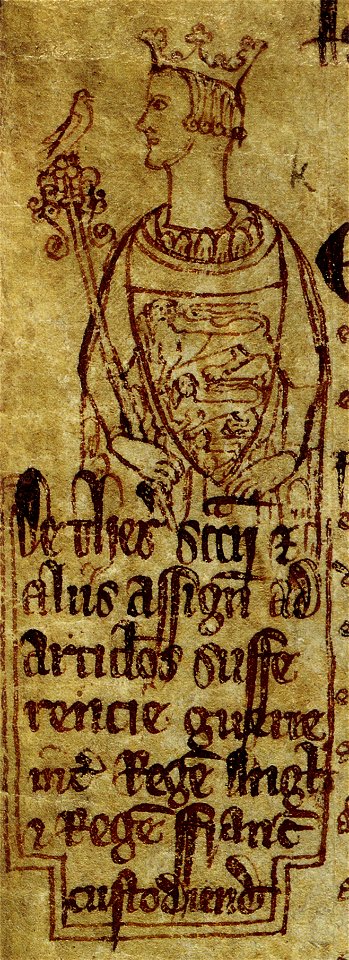 De thes' sccij &
aliis assign ad
articlos suffe
rencie guerre
int' Regē Angl'
& Regē ffranc'
custodiend
k